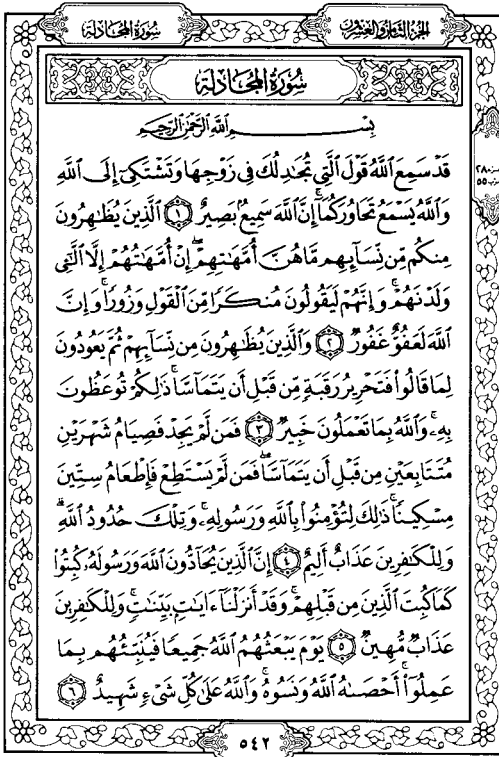 سُورَةُ المُجَادلَة
الجُزْءُ الثَّامِنُ وَالعِشْرُونَ
سُورَةُ المُجَادلَة
بِسْمِ ٱللَّهِ ٱلرَّحْمَٰنِ ٱلرَّحِيمِ
قَدْ سَمِعَ ٱللَّهُ قَوْلَ ٱلَّتِى تُجَٰدِلُكَ فِى زَوْجِهَا وَتَشْتَكِىٓ إِلَى ٱللَّهِ
وَٱللَّهُ يَسْمَعُ تَحَاوُرَكُمَآ ۚ إِنَّ ٱللَّهَ سَمِيعٌۢ بَصِيرٌ ١ ٱلَّذِينَ يُظَٰهِرُونَ
مِنكُم مِّن نِّسَآئِهِم مَّا هُنَّ أُمَّهَٰتِهِمْ ۖ إِنْ أُمَّهَٰتُهُمْ إِلَّا ٱلَّٰٓـِٔى
وَلَدْنَهُمْ ۚ وَإِنَّهُمْ لَيَقُولُونَ مُنكَرًا مِّنَ ٱلْقَوْلِ وَزُورًا ۚ وَإِنَّ
ٱللَّهَ لَعَفُوٌّ غَفُورٌ ٢ وَٱلَّذِينَ يُظَٰهِرُونَ مِن نِّسَآئِهِمْ ثُمَّ يَعُودُونَ
لِمَا قَالُوا۟ فَتَحْرِيرُ رَقَبَةٍ مِّن قَبْلِ أَن يَتَمَآسَّا ۚ ذَٰلِكُمْ تُوعَظُونَ
بِهِۦ ۚ وَٱللَّهُ بِمَا تَعْمَلُونَ خَبِيرٌ ٣ فَمَن لَّمْ يَجِدْ فَصِيَامُ شَهْرَيْنِ
مُتَتَابِعَيْنِ مِن قَبْلِ أَن يَتَمَآسَّا ۖ فَمَن لَّمْ يَسْتَطِعْ فَإِطْعَامُ سِتِّينَ
مِسْكِينًا ۚ ذَٰلِكَ لِتُؤْمِنُوا۟ بِٱللَّهِ وَرَسُولِهِۦ ۚ وَتِلْكَ حُدُودُ ٱللَّهِ ۗ
وَلِلْكَٰفِرِينَ عَذَابٌ أَلِيمٌ ٤ إِنَّ ٱلَّذِينَ يُحَآدُّونَ ٱللَّهَ وَرَسُولَهُۥ كُبِتُوا۟
كَمَا كُبِتَ ٱلَّذِينَ مِن قَبْلِهِمْ ۚ وَقَدْ أَنزَلْنَآ ءَايَٰتٍۭ بَيِّنَٰتٍ ۚ وَلِلْكَٰفِرِينَ
عَذَابٌ مُّهِينٌ ٥ يَوْمَ يَبْعَثُهُمُ ٱللَّهُ جَمِيعًا فَيُنَبِّئُهُم بِمَا
عَمِلُوٓا۟ ۚ أَحْصَىٰهُ ٱللَّهُ وَنَسُوهُ ۚ وَٱللَّهُ عَلَىٰ كُلِّ شَىْءٍ شَهِيدٌ ٦
٥٤٢